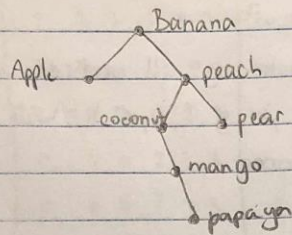 Banana
Apple peach
coconut pear
mango
papaya